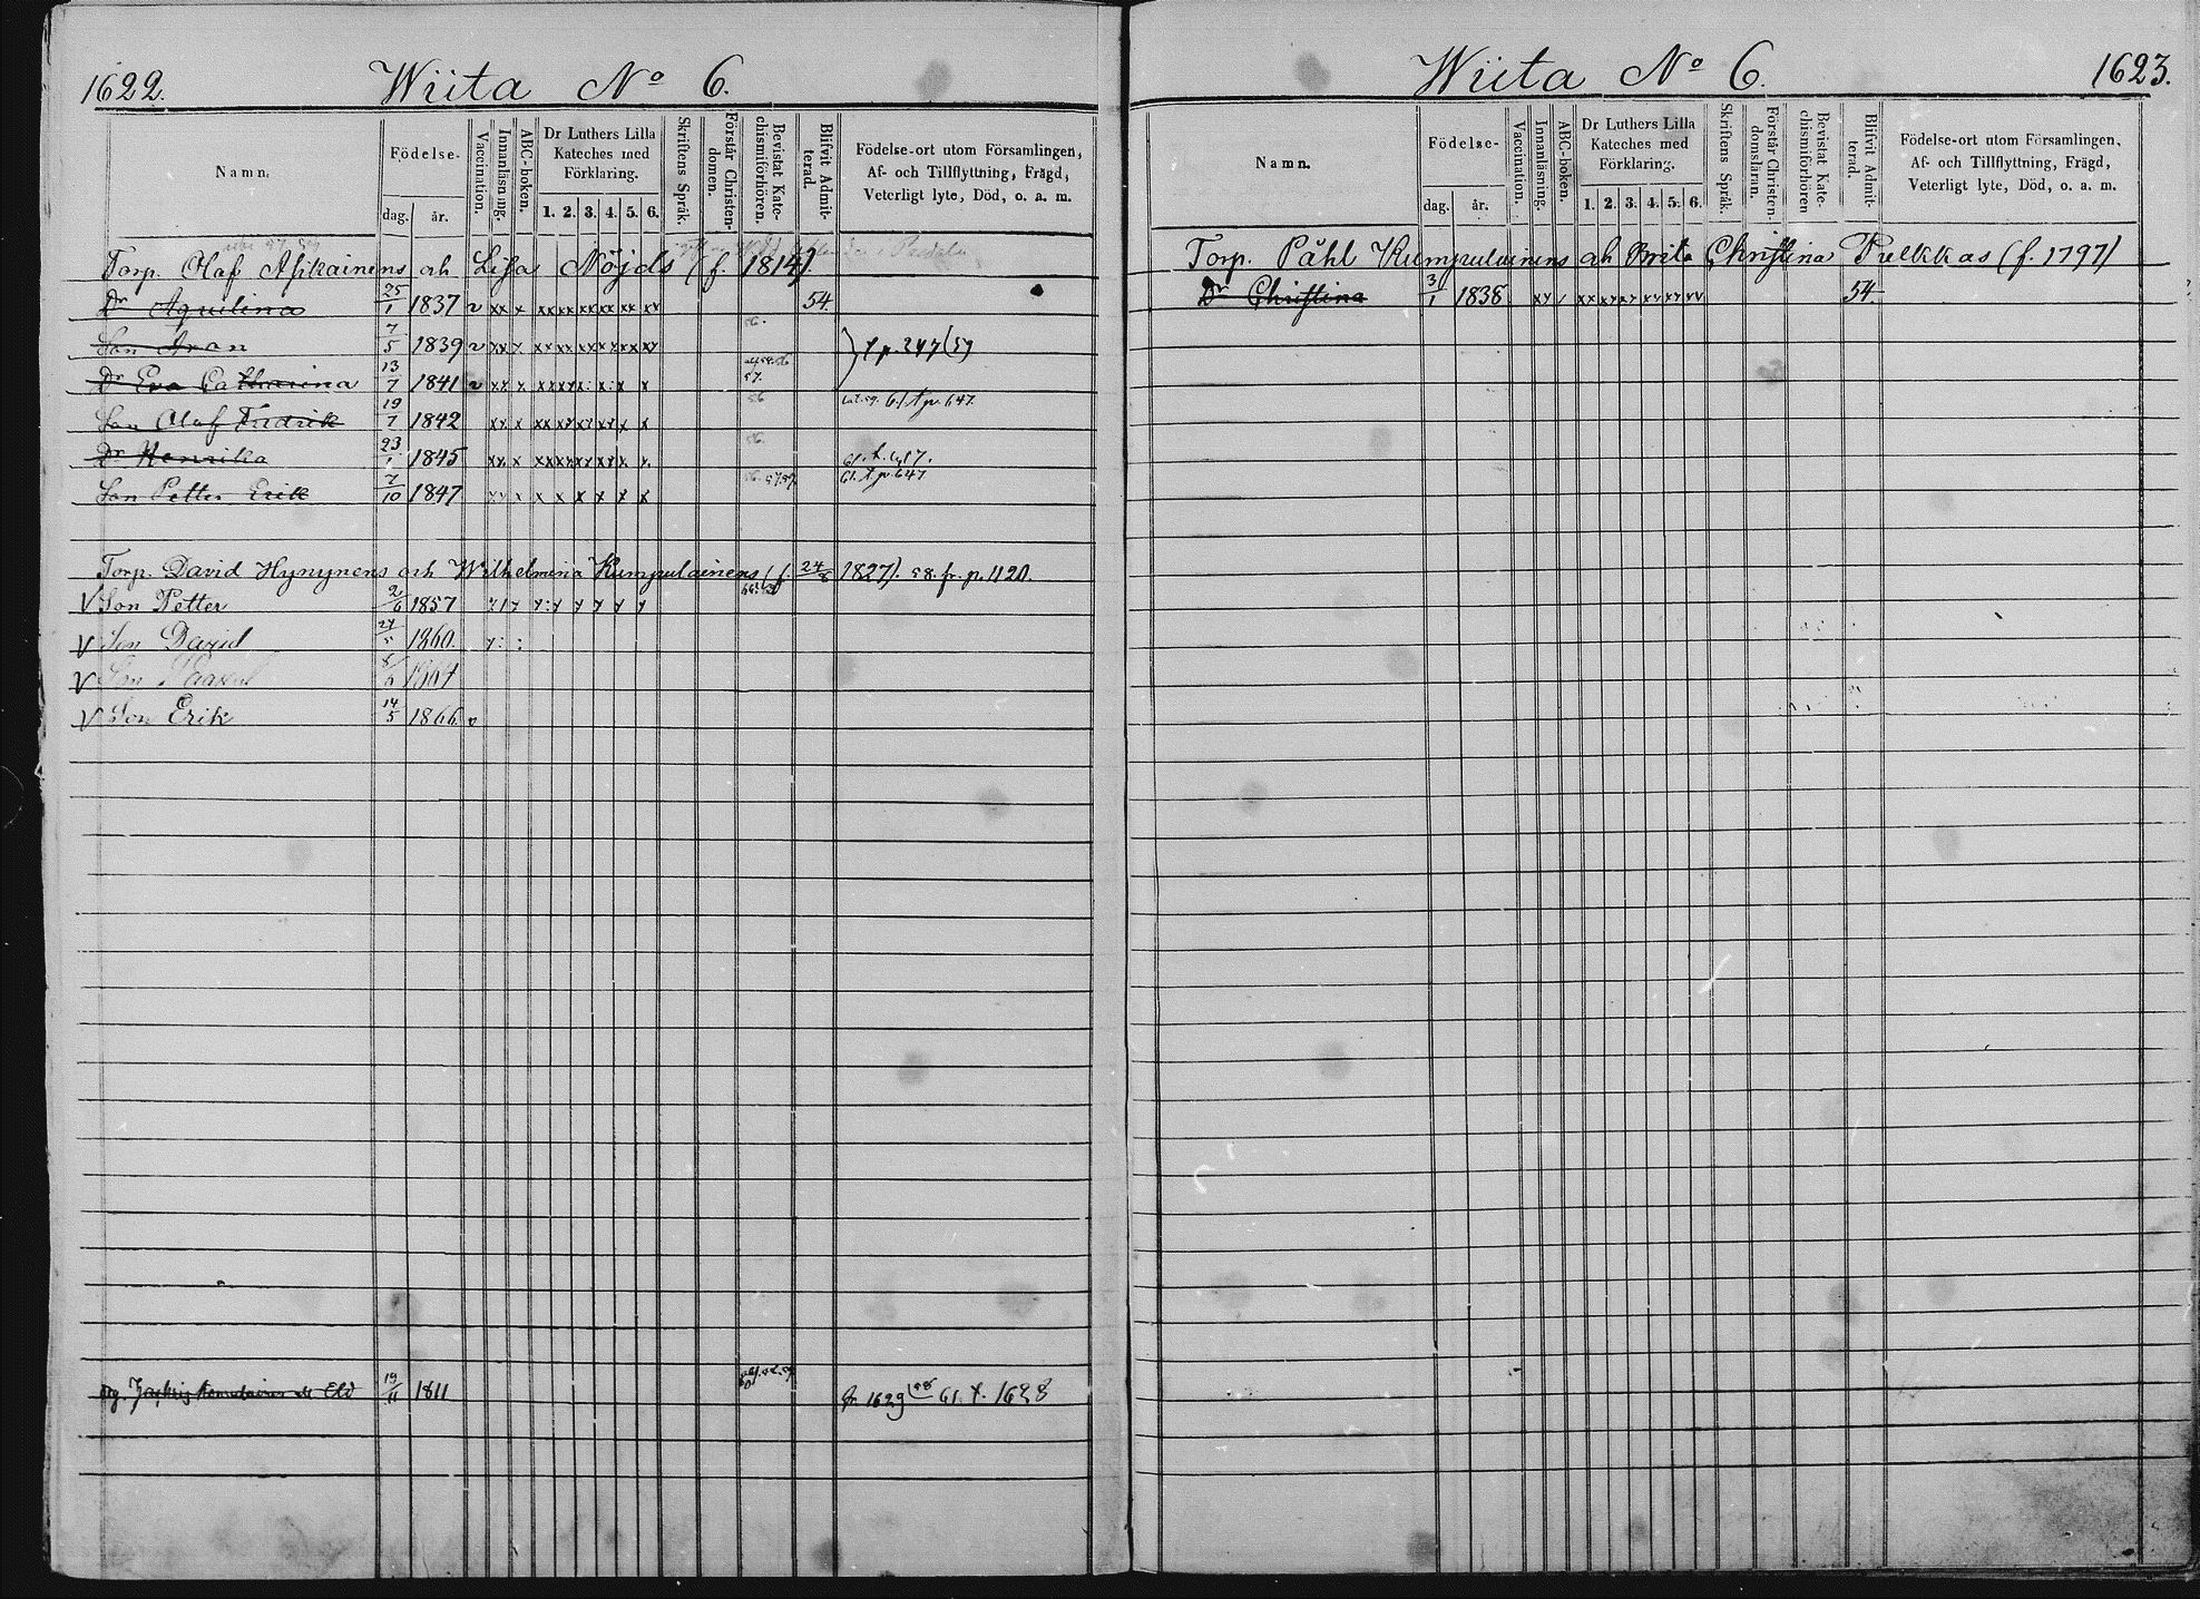 1622. Wiita No 6.
Namn. Födelse- dag. år. Vaccination. Innanläsning. ABC-boken. Dr Luthers Lilla Kateches med Förklaring. 1. 2. 3. 4. 5. 6. Skriftens Språk. Förstår Christendomen. Bevistat Katechismiförhören. Blifvit Admitterad. Födelse-ort utom Församlingen, Af- och Tillflyttning, Frägd, Veterligt lyte, Död, o. a. m.
Torp. Olaf Asikainens och Lisa Nöjds (f. 1814).
Dr Aquilina 25/1 1837 v xx x xx xx xx xx xx xx 54.
Son Aran 7/5 1839 v xx x xx xx xx xx xx xx 56. } t p. 247 (59
Dr Eva Catharina 13/7 1841 v xx x 57.
Son Olaf Fredrik 19/7 1842 xx x xx xx xx xx x x 56 61 t pr. 647.
Dr Henrika 23/1 1845 xx x xx xx xx xx x x. 56. 61. t.
Son Petter Erik 7/10 1847 xx x x x x x x x 61. t pr 647
Torp. David Hynynens och Wilhelmina Kumpulainens (f. 24/8 1827). 58. fr. p. 1120.
V Son Petter 2/6 1857
V Son David 24/5 1860.
V Son 1864
V Son Erik 14/5 1866. v
19/11 1811 fr. 1629 58 61. t. 1628
Wiita No 6. 1623.
Namn. Födelse- dag. år. Vaccination. Innanläsning. ABC-boken. Dr Luthers Lilla Kateches med Förklaring. 1. 2. 3. 4. 5. 6. Skriftens Språk. Förstår Christendomsläran. Bevistat Katechismiförhören Blifvit Admitterad. Födelse-ort utom Församlingen, Af- och Tillflyttning, Frägd, Veterligt lyte, Död, o. a. m.
Torp. Påhl Kumpulainens och Brita Christina Pulkkas (f. 1797)
Dr Christina 3/1 1838 xx / xx xx xx xx xx xx 54